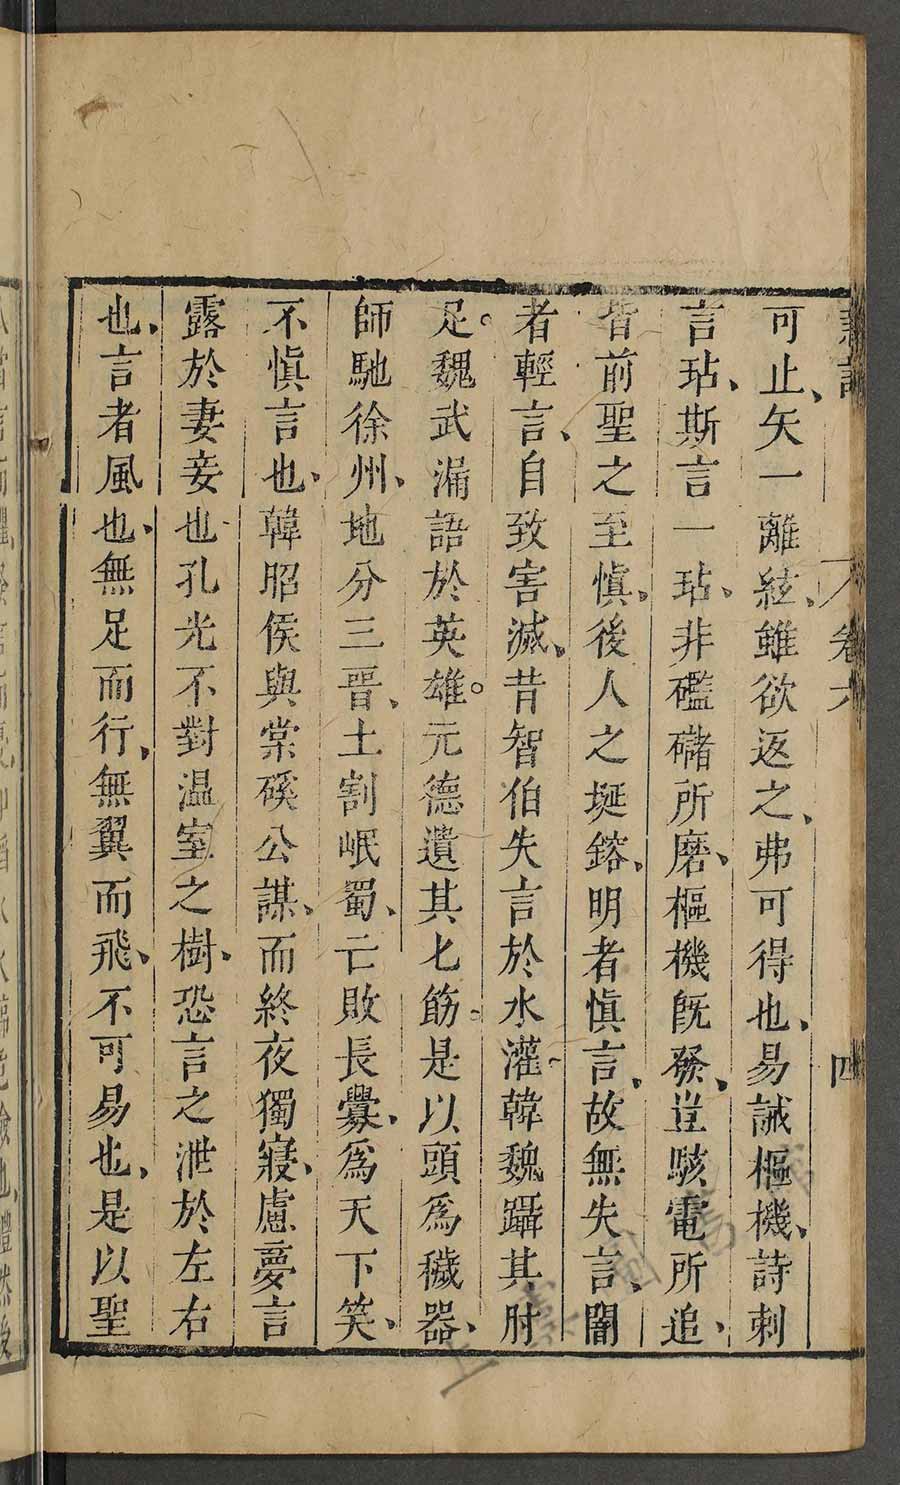 卷六
四
可止矢一離絃雖欲返之弗可得也易誡樞機詩刺
言玷斯言一玷非礛䃴所磨樞機旣發豈駭電所追
皆前聖之至愼後人之埏鎔明者愼言故無失言闇
者輕言自致害滅昔智伯失言於水灌韓魏躡其肘
足魏武漏語於英雄元德遺其匕筯是以頭爲穢器
師馳徐州地分三晉土割岷蜀亡敗長釁爲天下笑
不愼言也韓昭侯與棠磎公謀而終夜獨寢慮夢言
露於妻妾也孔光不對温室之樹恐言之泄於左右
也言者風也無足而行無翼而飛不可易也是以聖